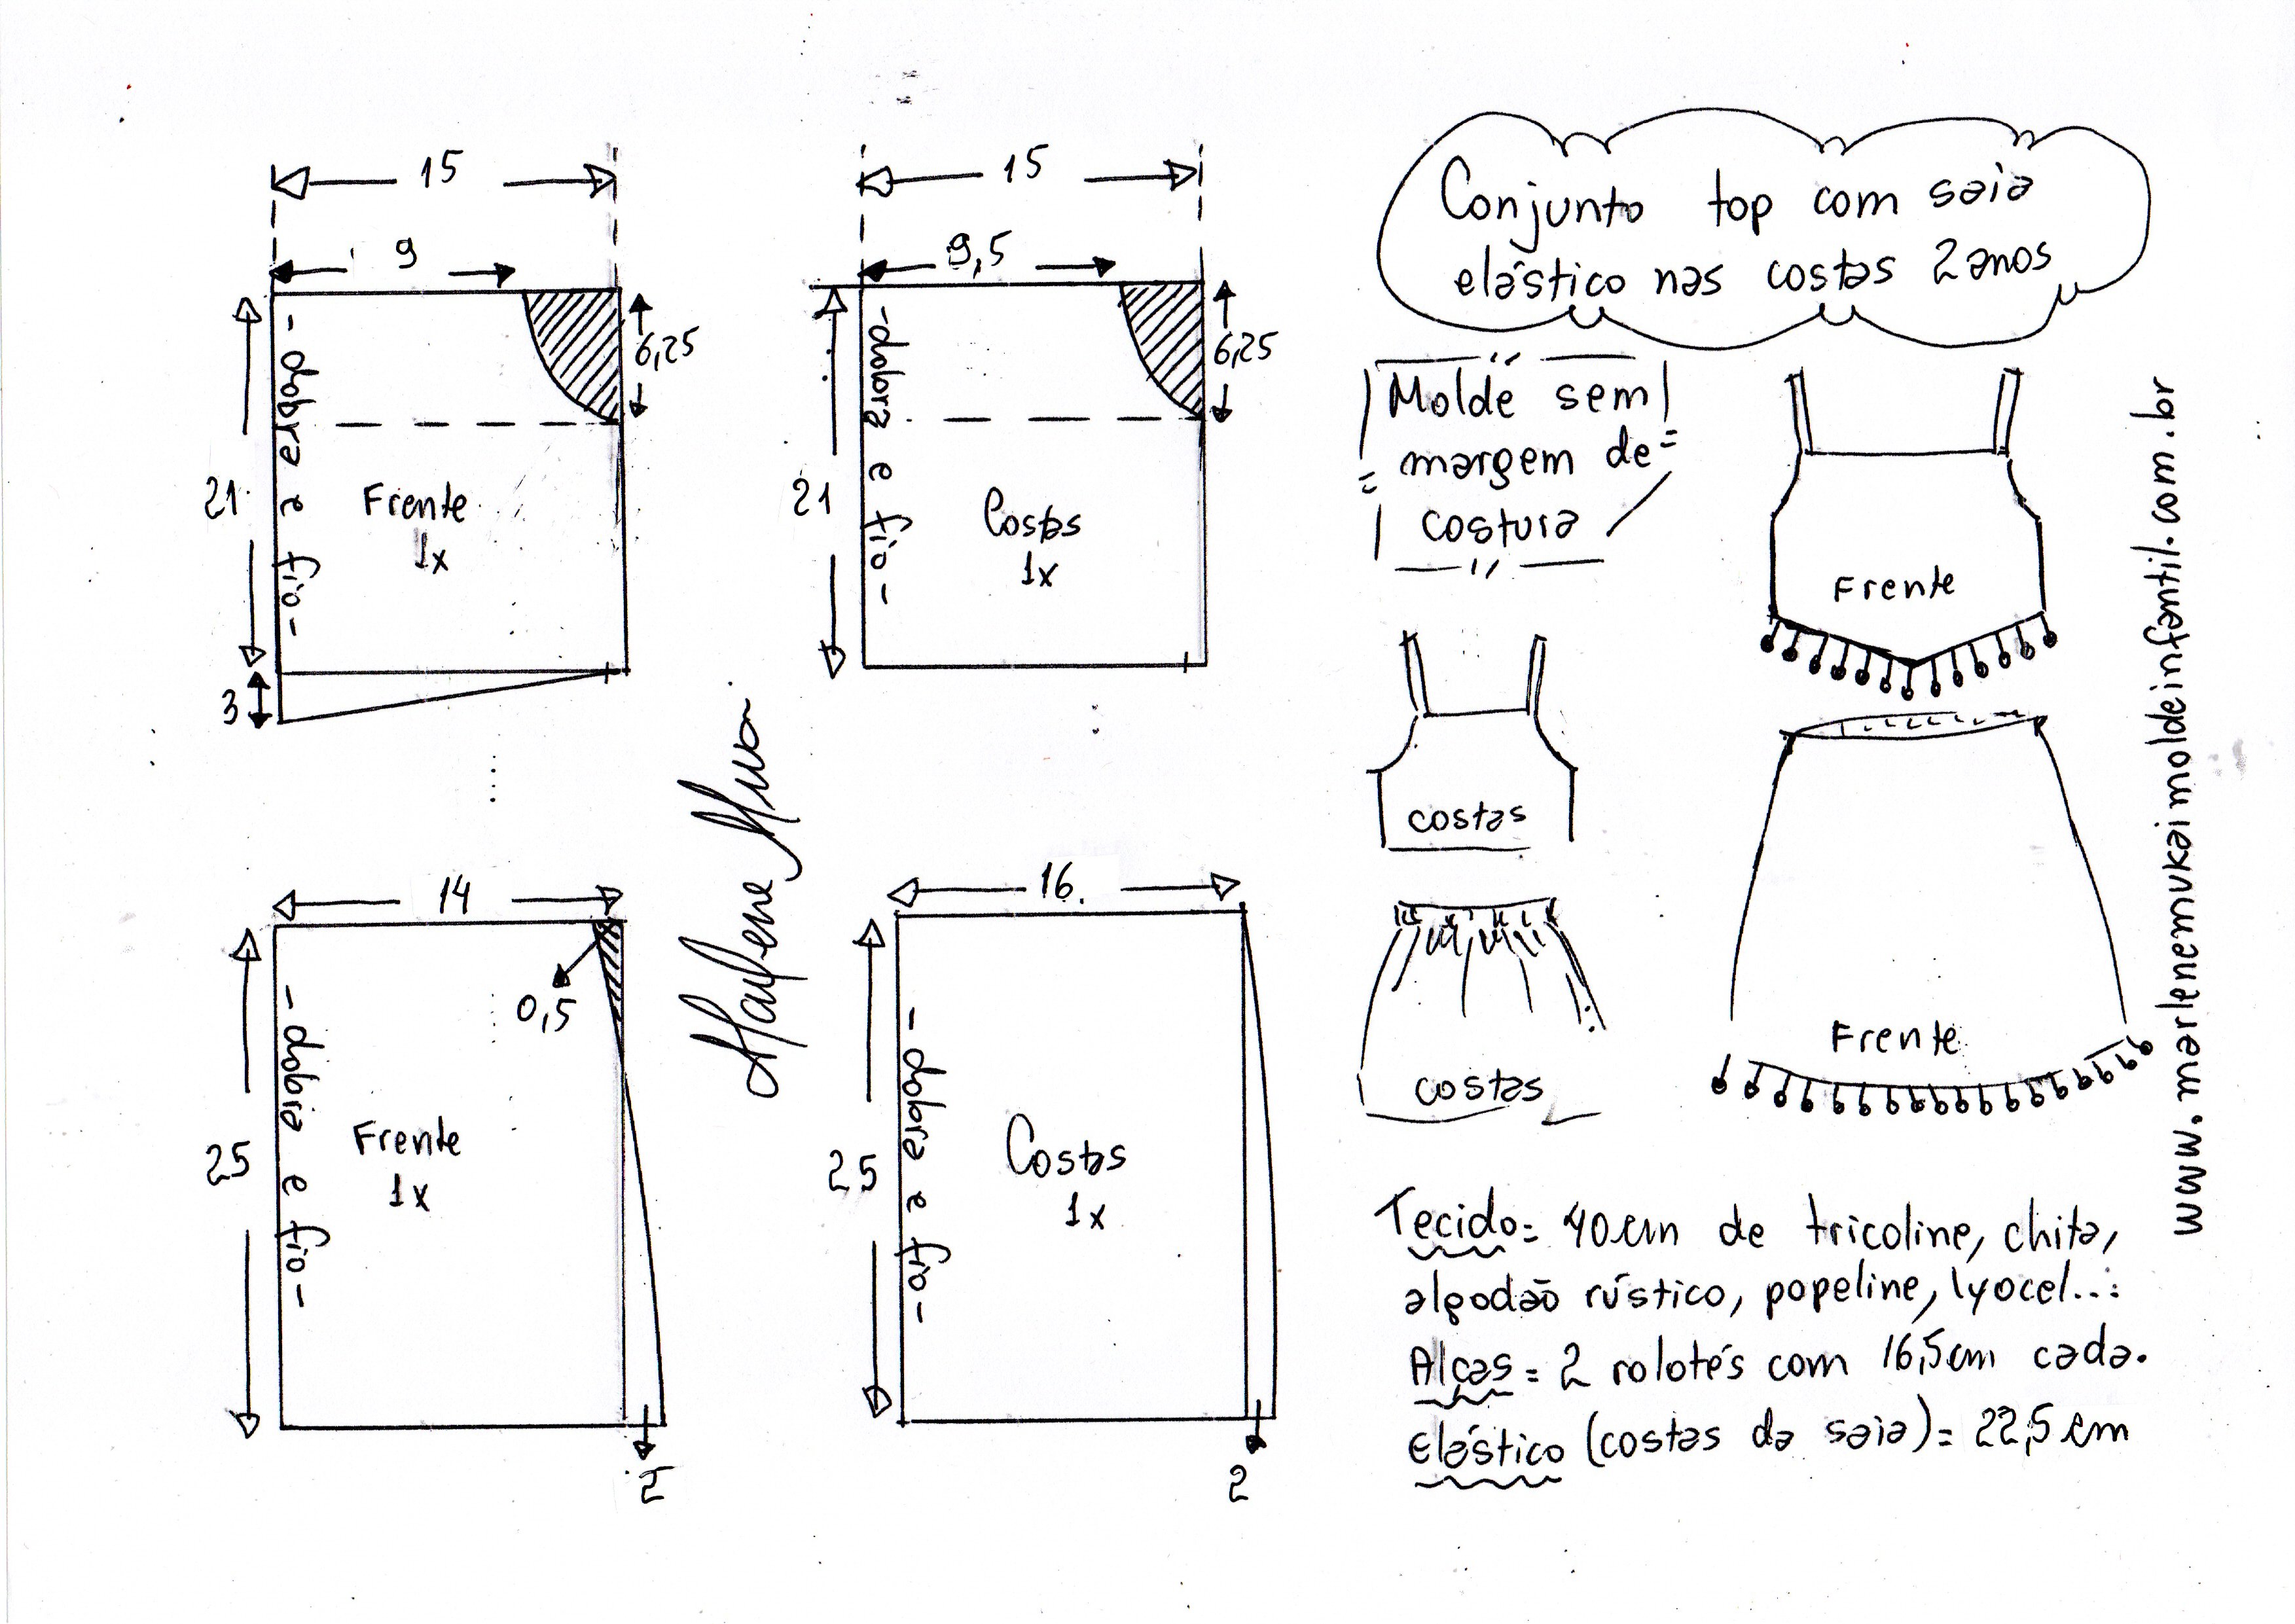 Conjunto top com saia
elástico nas costas 2 anos
Molde sem
margem de
costura
15
9
6,25
21
- dobra e fio -
Frente
1x
3
15
9,5
6,25
21
- dobra e fio -
Costas
1x
14
0,5
25
- dobra e fio -
Frente
1x
2
16
25
- dobra e fio -
Costas
1x
2
Marlene Mukai
Frente
costas
costas
Frente
www.marlenemukaimoldeinfantil.com.br
Tecido= 40cm de tricoline, chita,
algodão rústico, popeline, lyocel...
Alças = 2 rolotés com 16,5cm cada.
Elástico (costas da saia) = 22,5 cm